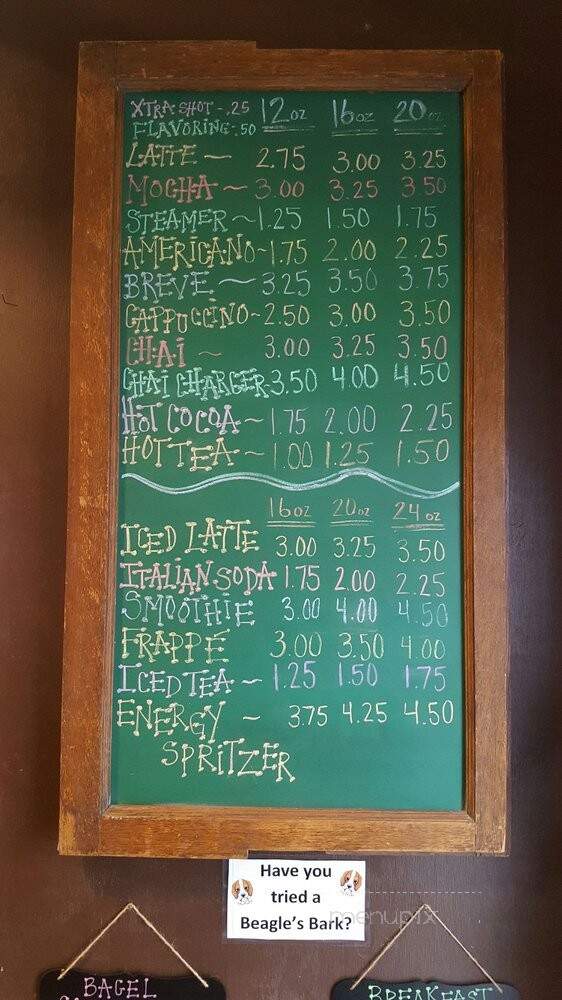 XTRA SHOT - .25 12oz 16oz 20oz
FLAVORING - .50
LATTE ~ 2.75 3.00 3.25
MOCHA ~ 3.00 3.25 3.50
STEAMER ~ 1.25 1.50 1.75
AMERICANO ~ 1.75 2.00 2.25
BREVE ~ 3.25 3.50 3.75
CAPPUCCINO ~ 2.50 3.00 3.50
CHAI ~ 3.00 3.25 3.50
CHAI CHARGER - 3.50 4.00 4.50
HOT COCOA ~ 1.75 2.00 2.25
HOT TEA ~ 1.00 1.25 1.50
16oz 20oz 24oz
ICED LATTE 3.00 3.25 3.50
ITALIAN SODA 1.75 2.00 2.25
SMOOTHIE 3.00 4.00 4.50
FRAPPÉ 3.00 3.50 4.00
ICED TEA ~ 1.25 1.50 1.75
ENERGY ~ 3.75 4.25 4.50
SPRITZER
Have you
tried a
Beagle's Bark?
menupix
BAGEL BREAKFAST